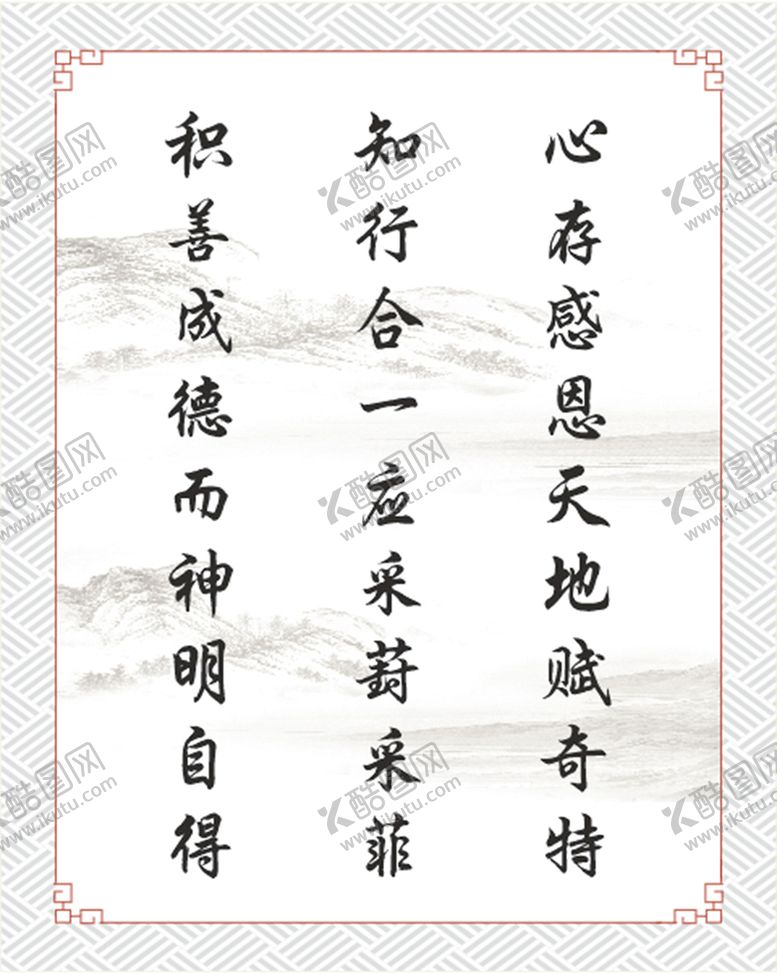 心存感恩天地赋奇特
知行合一应采葑采菲
积善成德而神明自得
酷图网
www.ikutu.com